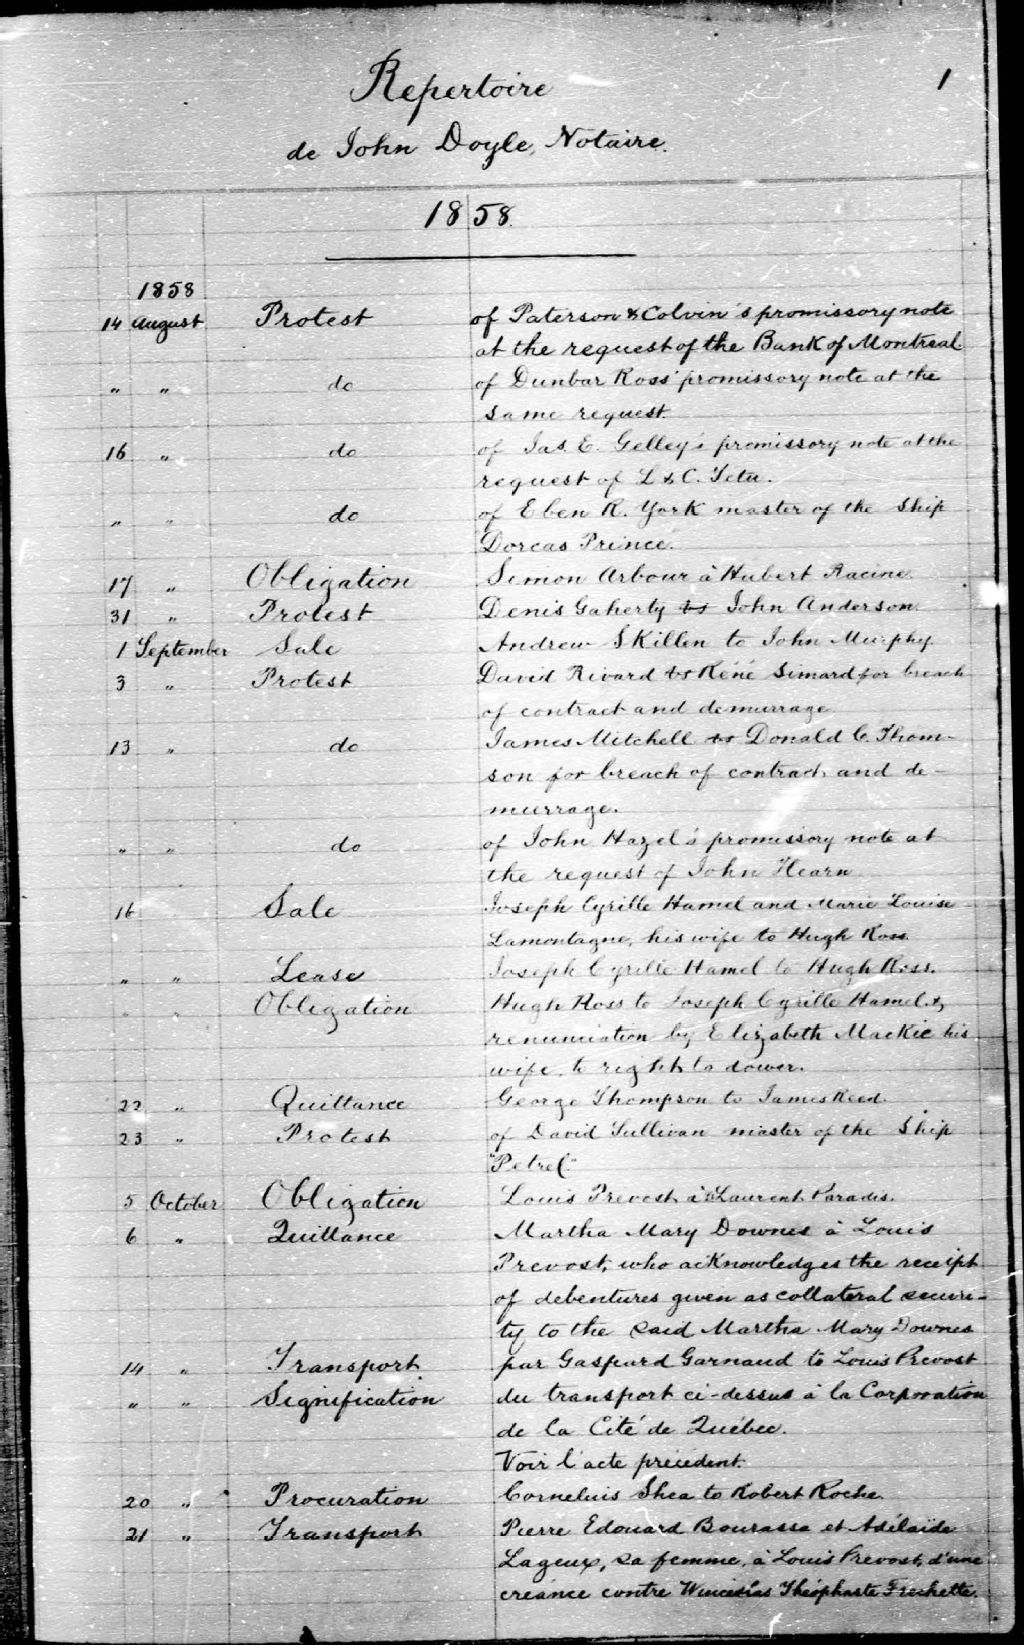 1
Repertoire
de John Doyle, Notaire.
1858.
1858
14 August Protest of Paterson & Colvin's promissory note
at the request of the Bank of Montreal
" " do of Dunbar Ross' promissory note at the
same request.
16 " do of Jas. E. Gelley's promissory note at the
request of L & C. Tetu.
" " do of Eben R. York master of the Ship
Dorcas Prince.
17 " Obligation Simon Arbour à Hubert Racine.
31 " Protest Denis Gaherty vs John Anderson.
1 September Sale Andrew Skillen to John Murphy.
3 " Protest David Rivard vs Réné Simard for breach
of contract and demurrage
13 " do James Mitchell vs Donald C. Thom-
son for breach of contract and de-
murrage.
" " do of John Hazel's promissory note at
the request of John Hearn
16 Sale Joseph Cyrille Hamel and Marie Louise
Lamontagne, his wife to Hugh Ross.
" " Lease Joseph Cyrille Hamel to Hugh Ross.
" " Obligation Hugh Ross to Joseph Cyrille Hamel &
renunciation by Elizabeth Mackie his
wife to right to dower.
22 " Quittance George Thompson to James Reed.
23 " Protest of David Sullivan master of the Ship
"Petrel"
5 October Obligation Louis Prevost à Laurent Paradis.
6 " Quittance Martha Mary Downes à Louis
Prevost, who acknowledges the receipt
of debentures given as collateral securi-
ty to the said Martha Mary Downes
14 " Transport par Gaspard Garnaud to Louis Prevost
" " Signification du transport ci-dessus à la Corporation
de la Cité de Québec.
Voir l'acte précédent.
20 " Procuration Cornelius Shea to Robert Roche.
21 " Transport Pierre Edouard Bourassa et Adélaïde
Lageux, sa femme, à Louis Prevost, d'une
créance contre Théophaste Frechette.